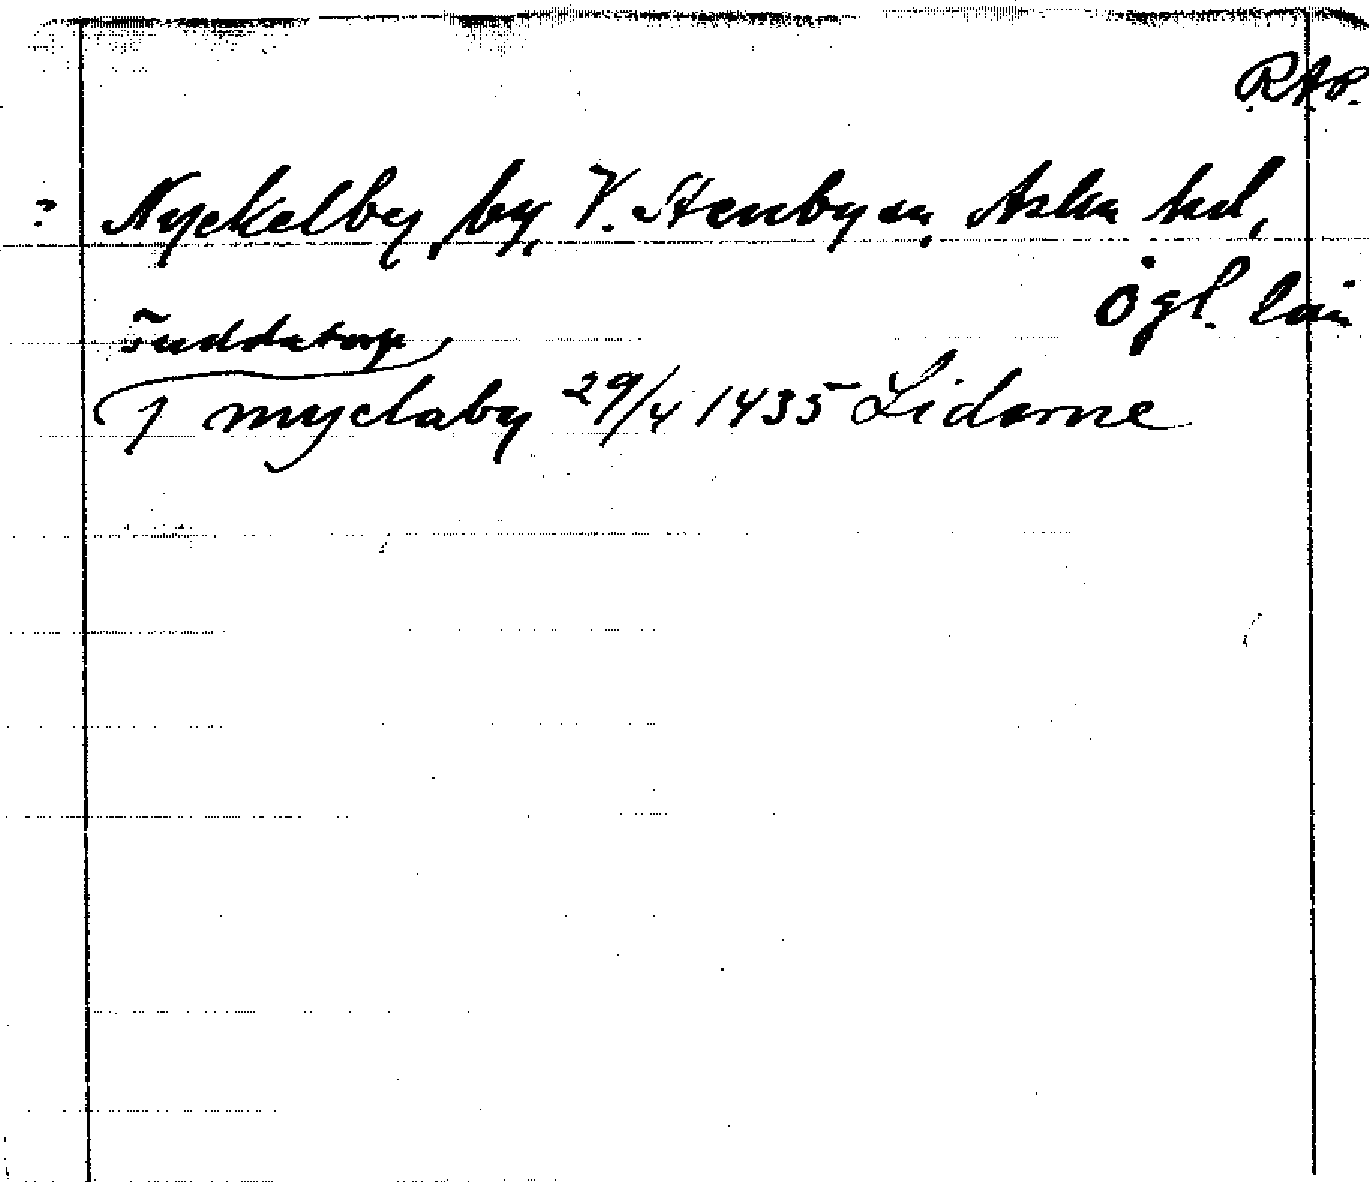 RAP.
? Nyckelby, by, V. Stenby sn, Aska hd,
Ögl. län
Tuddatorp
J myclaby 29/4 1435 Lidarne